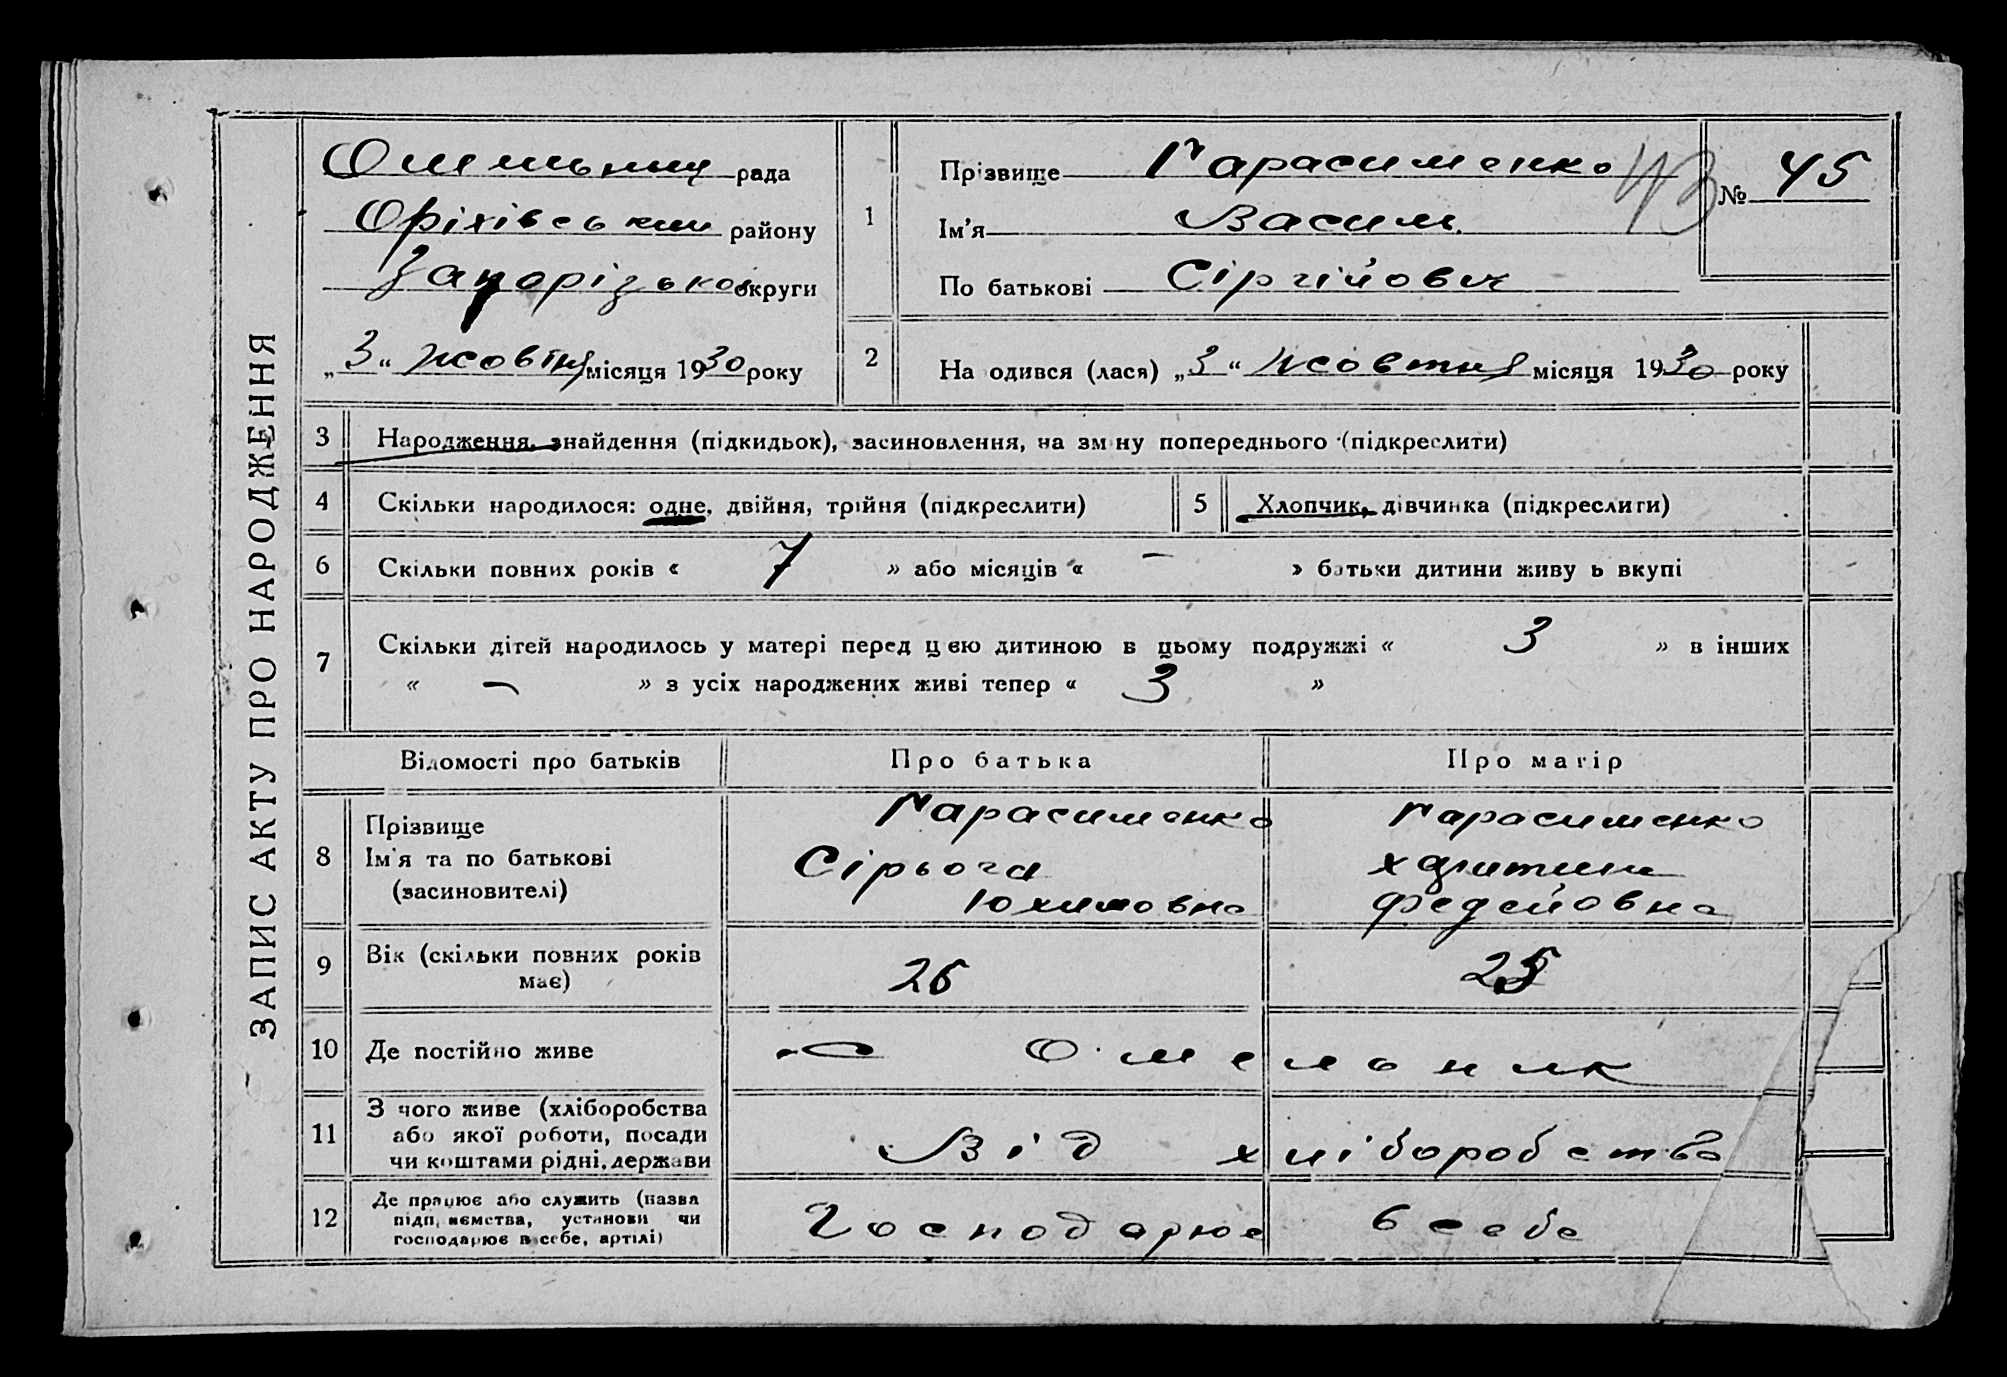 ЗАПИС АКТУ ПРО НАРОДЖЕННЯ
рада
Оріхівський району
Запорізької округи
„3“ жовтня місяця 1930 року
1
Прізвище Гарасименко
Ім'я Василь
По батькові Сіргійович
43
№ 45
2
На одився (лася) „3“ жовтня місяця 1930 року
3 Народження, знайдення (підкидьок), засиновлення, на зміну попереднього (підкреслити)
4 Скільки народилося: одне, двійня, трійня (підкреслити)
5 Хлопчик, дівчинка (підкреслити)
6 Скільки повних років « 7 » або місяців « — » батьки дитини живуть вкупі
7 Скільки дітей народилось у матері перед цією дитиною в цьому подружжі « 3 » в інших
« — » з усіх народжених живі тепер « 3 »
Відомості про батьків Про батька Про матір
8 Прізвище
Ім'я та по батькові
(засиновителі)
Гарасименко
Сірьога
Юхимовна
Гарасименко
Федейовна
9 Вік (скільки повних років
має)
26
25
10 Де постійно живе
с Омельник
11 З чого живе (хліборобства
або якої роботи, посади
чи коштами рідні, держави
Від хліборобства
12 Де працює або служить (назва
підприємства, установи чи
господарює в себе, артілі)
Господарює в себе